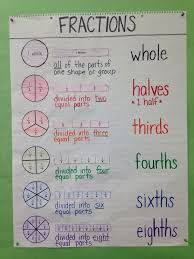 FRACTIONS
1 whole
whole
all of the parts of
one shape or group
halves
* 1 half *
divided into two
equal parts
thirds
divided into three
equal parts
fourths
divided into four
equal parts
sixths
divided into six
equal parts
eighths
divided into eight
equal parts